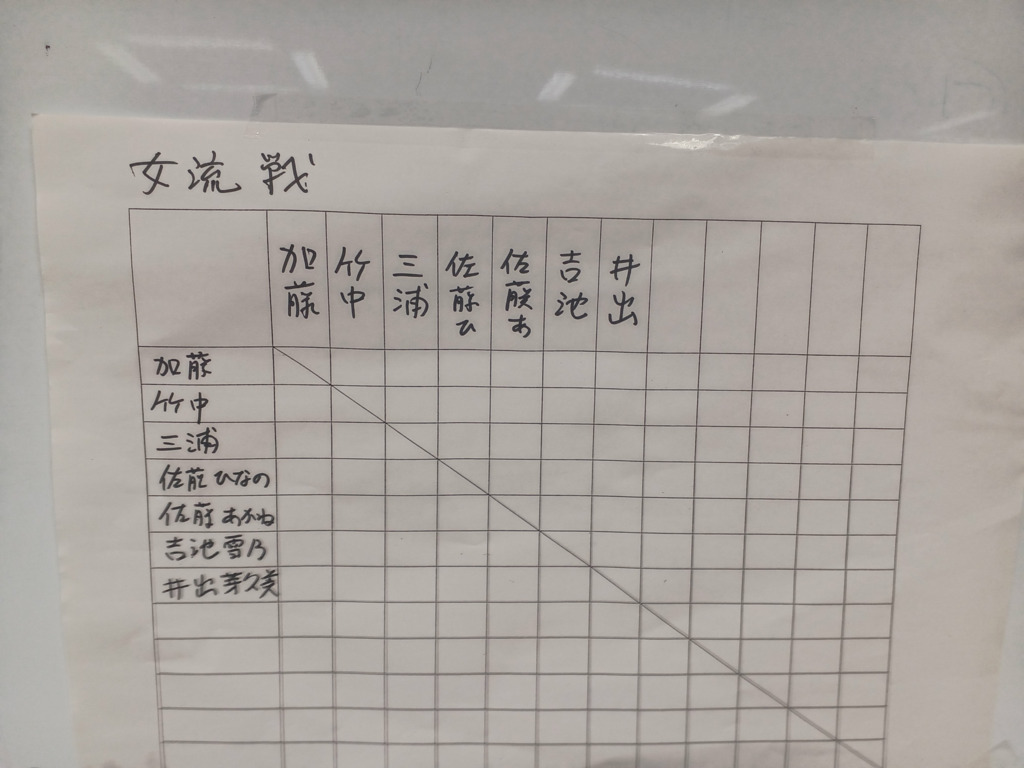 女流戦
加藤 竹中 三浦 佐藤ひ 佐藤あ 吉池 井出
加藤
竹中
三浦
佐藤ひなの
佐藤あかね
吉池雪乃
井出芽久美